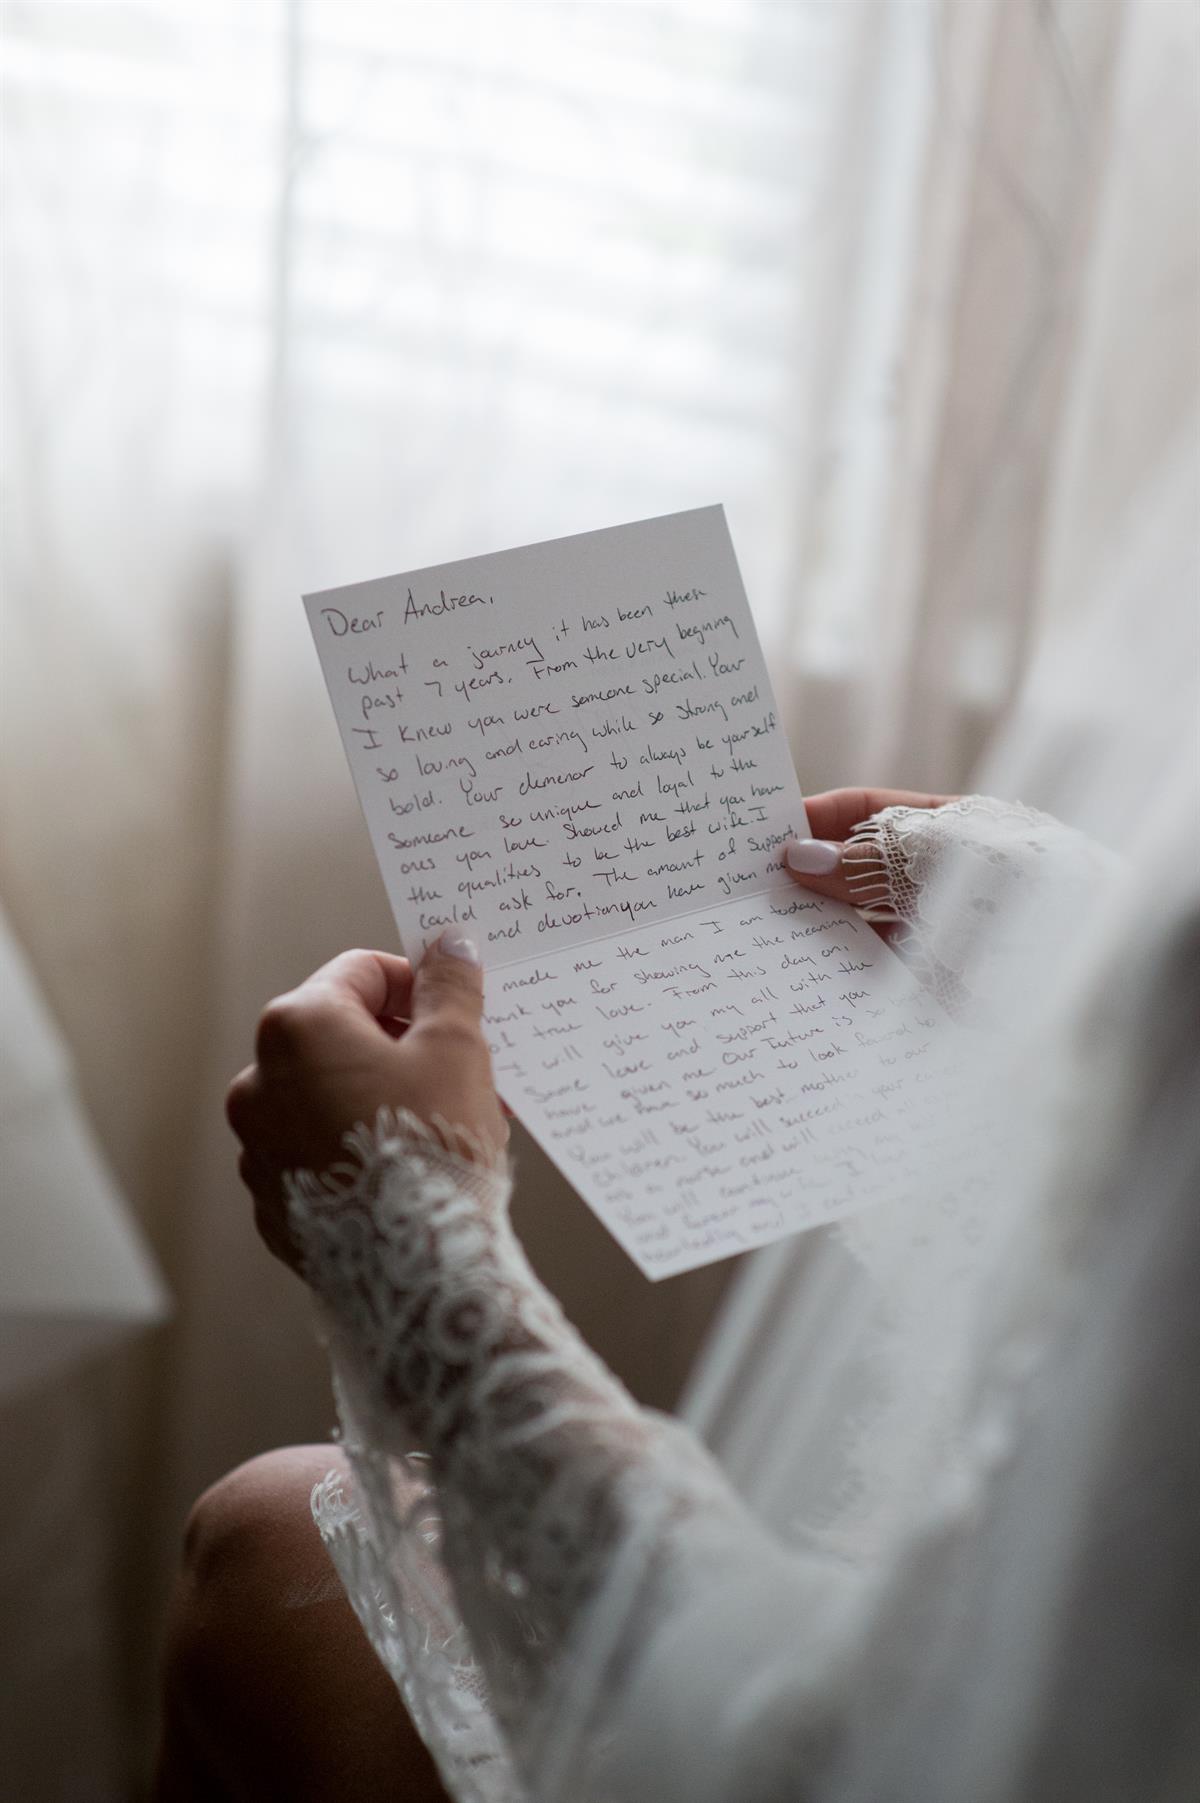 Dear Andrea,
What a journey it has been these
past 7 years. From the very begining
I knew you were someone special. Your
so loving and caring while so strong and
bold. Your demenor to always be yourself
Someone so unique and loyal to the
ones you love. Showed me that you have
the qualities to be the best wife. I
could ask for. The amount of support,
and devotion you have given me
made me the man I am today.
hank you for showing me the meaning
of true love. From this day on,
I will give you my all with the
Same love and support that you
have given me Our Future is so bright
and we have so much to look foward to
You will be the best mother to our
Children. You will succeed in your career
as a nurse and will exceed all
You will continue
and
and I